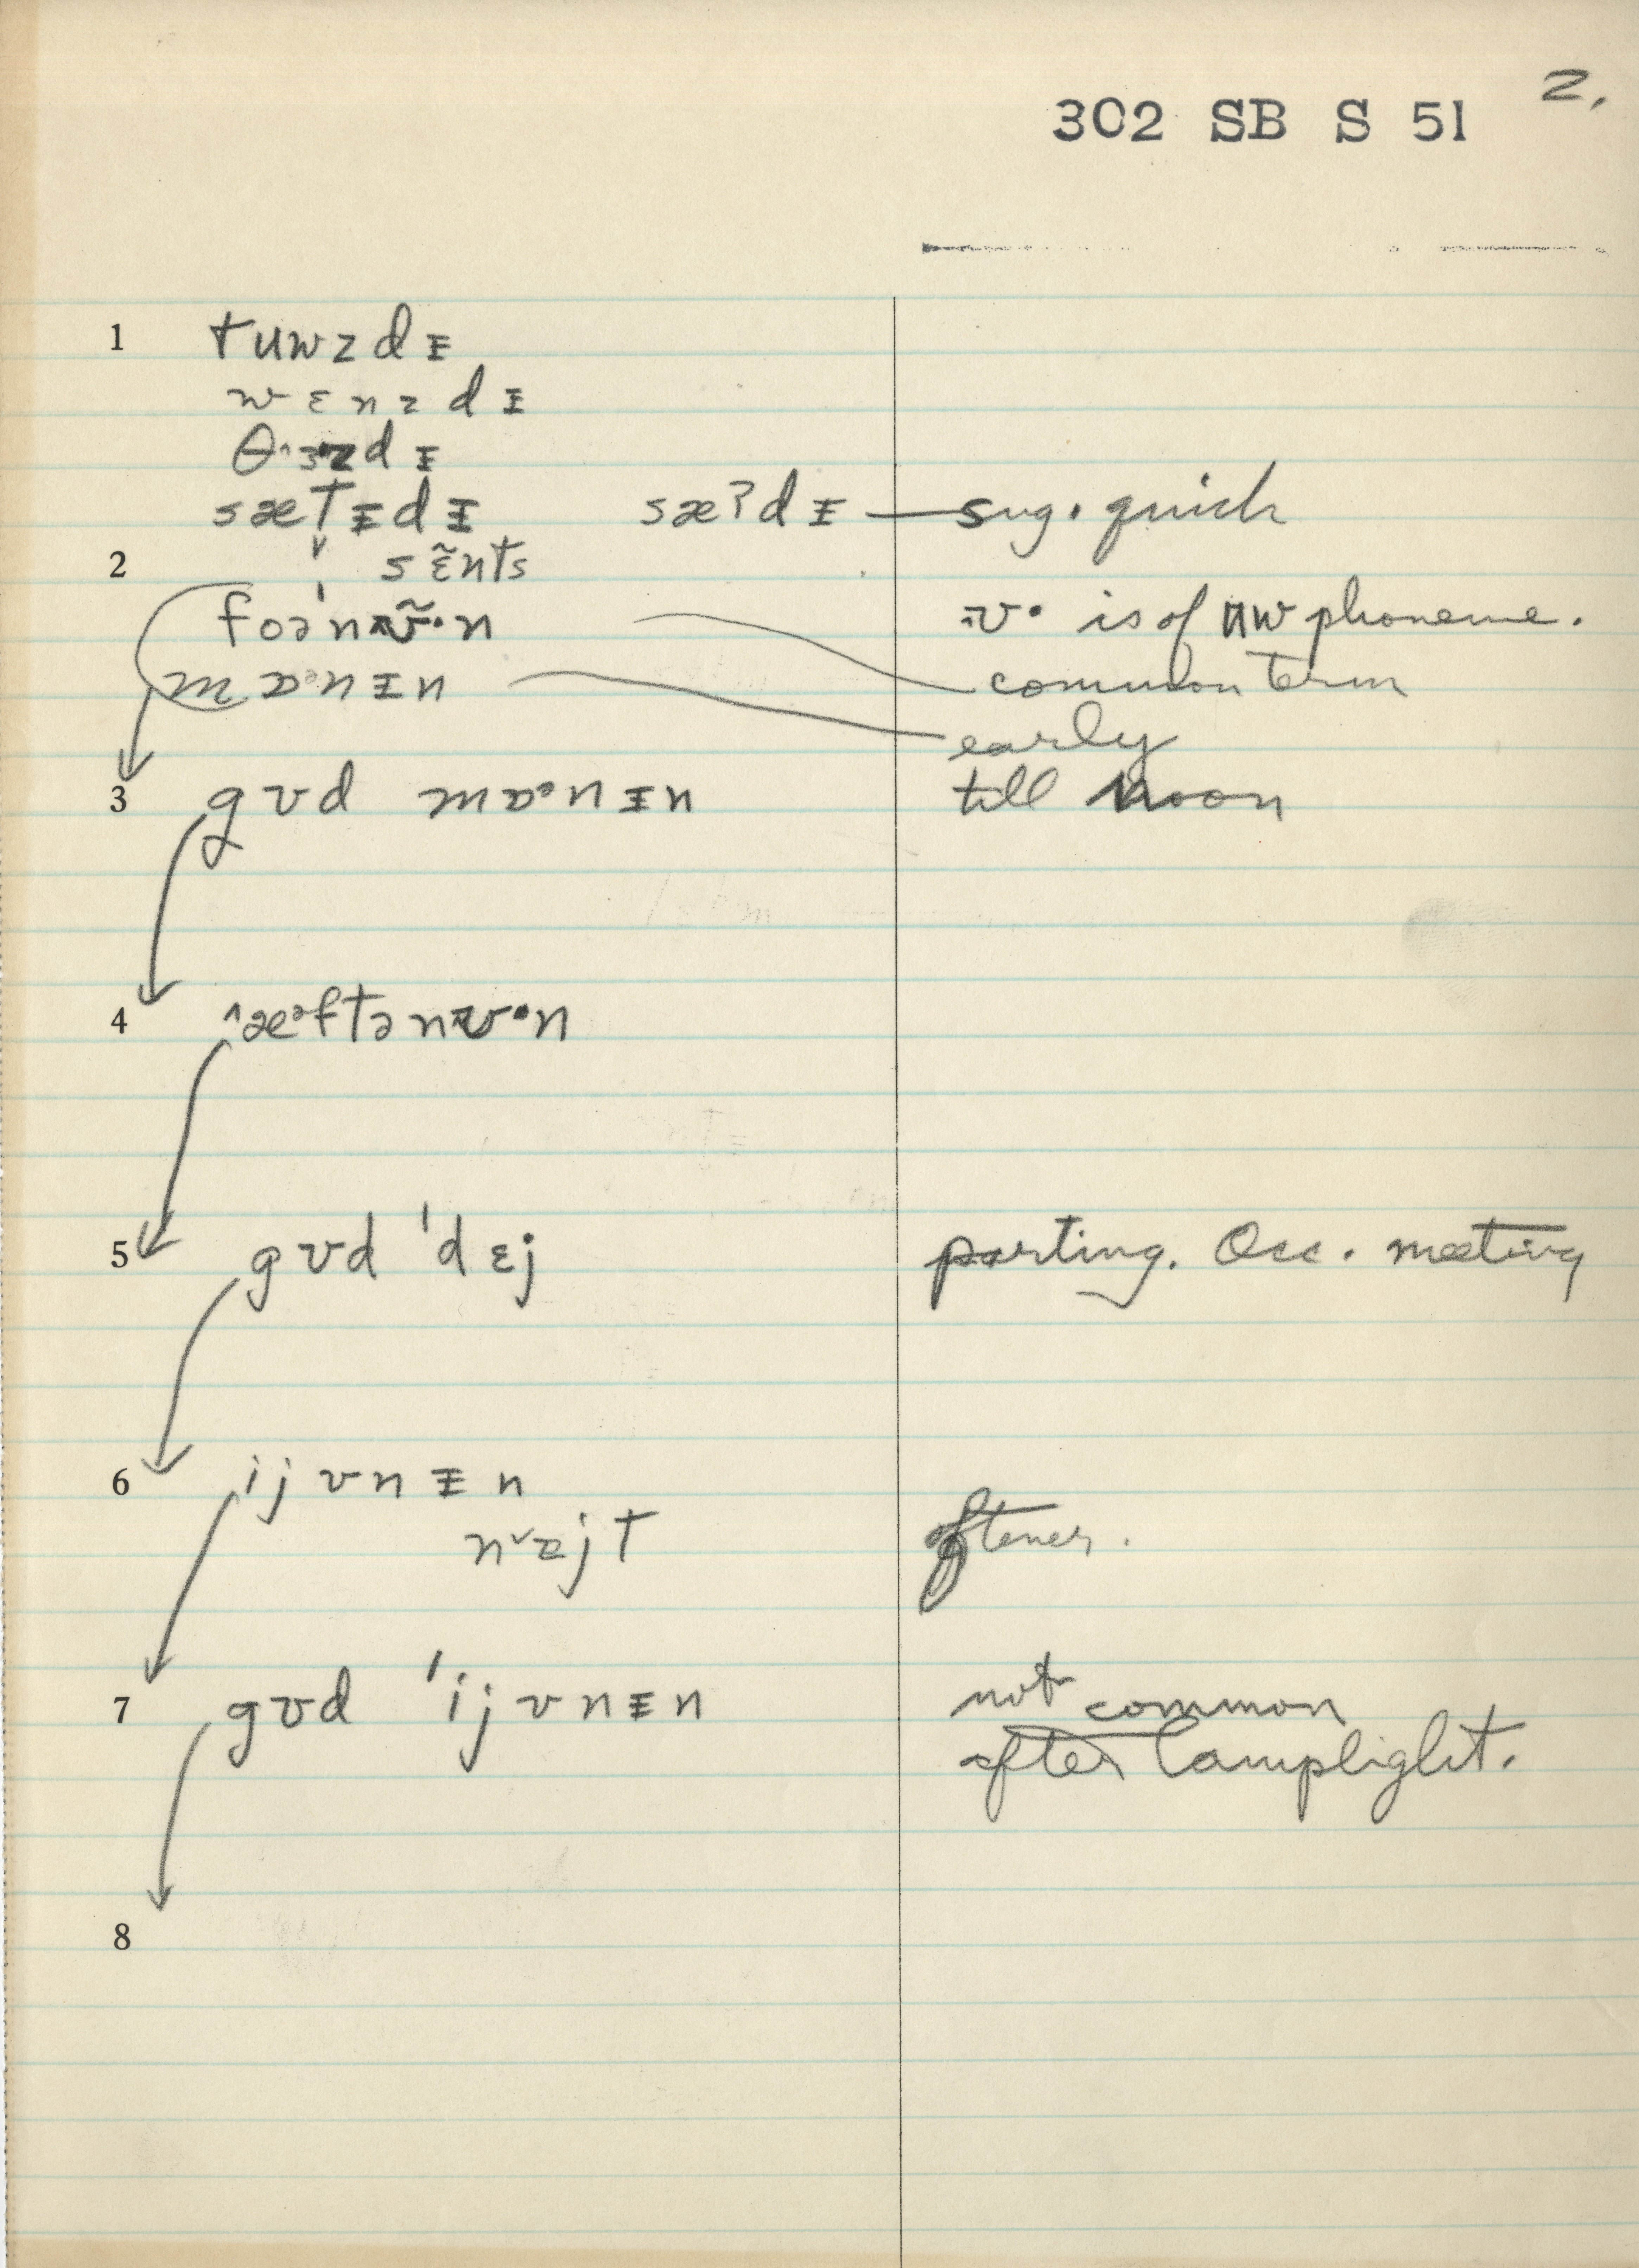 302 SB S 51 2.
1 tuwzdᵻ
wɛnzdᵻ
θ˄ɜzdᵻ
sætᵻdᵻ sæʔdᵻ — sug. quick
2 sɛ̃nts
foə'nʊ̃·n ʊ· is of uw phoneme.
mɒᵊnᵻn common term
early
3 gʊd mɒᵊnᵻn till noon
4 ˄æᵊftənʊ·n
5 gʊd 'dɛj parting. Occ. meeting
6 ijvnᵻn
n˅ajt oftener.
7 gʊd 'ijvnᵻn not common
after lamplight.
8